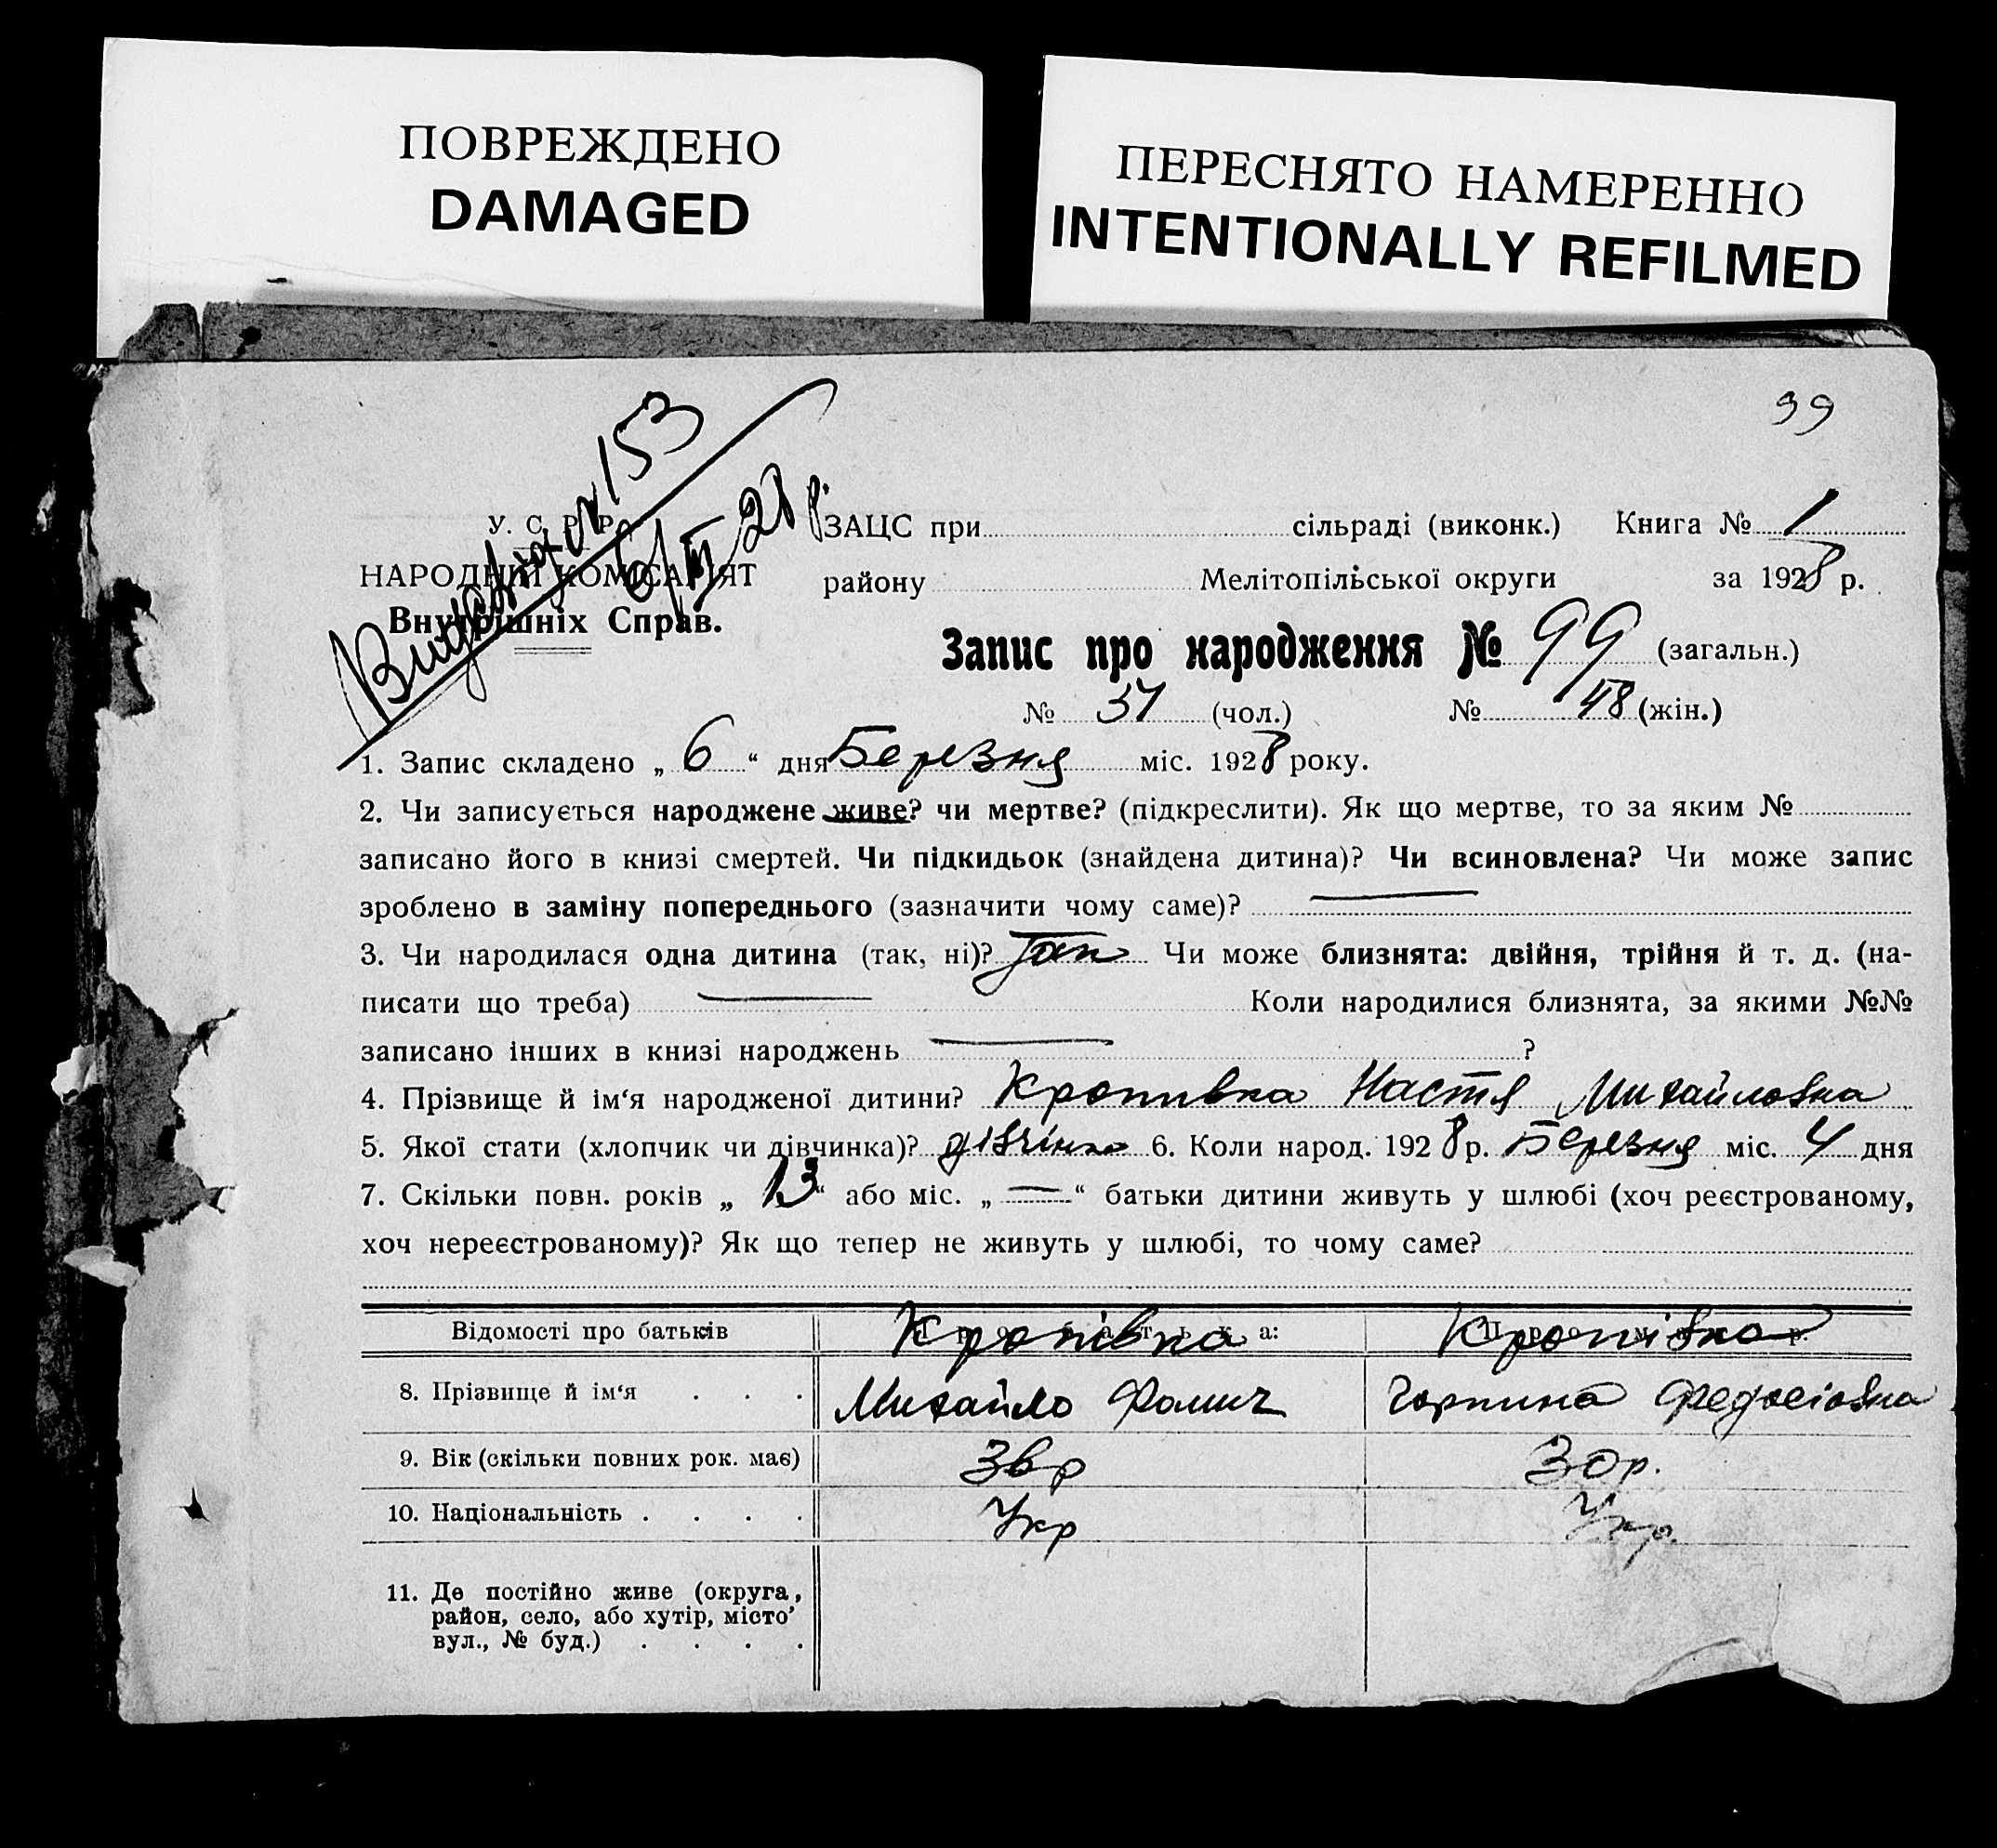 ПОВРЕЖДЕНО
DAMAGED
ПЕРЕСНЯТО НАМЕРЕННО
INTENTIONALLY REFILMED
99
153
6/III 28 р.
У. С. Р. Р.
НАРОДНИЙ КОМІСАРІЯТ
Внутрішніх Справ.
ЗАЦС при сільраді (виконк.) Книга № 1
району Мелітопільської округи за 1928 р.
Запис про народження № 99 (загальн.)
№ 51 (чол.) № 48 (жін.)
1. Запис складено „ 6 “ дня Березня міс. 1928 року.
2. Чи записується народжене живе? чи мертве? (підкреслити). Як що мертве, то за яким №
записано його в книзі смертей. Чи підкидьок (знайдена дитина)? Чи всиновлена? Чи може запис
зроблено в заміну попереднього (зазначити чому саме)? —
3. Чи народилася одна дитина (так, ні)? Так Чи може близнята: двійня, трійня й т. д. (на-
писати що треба) — Коли народилися близнята, за якими №№
записано інших в книзі народжень — ?
4. Прізвище й ім‘я народженої дитини? Кропивка Настя Михайловна
5. Якої стати (хлопчик чи дівчинка)? дівчінка 6. Коли народ. 1928 р. Березня міс. 4 дня
7. Скільки повн. років „ 13 “ або міс. „ — “ батьки дитини живуть у шлюбі (хоч реєстрованому,
хоч нереєстрованому)? Як що тепер не живуть у шлюбі, то чому саме?
Відомості про батьків Про батька: Кропівка Кропівка
8. Прізвище й ім‘я . . . Михайло Фомич Горпина Федосіовна
9. Вік (скільки повних рок. має) 36р 30р.
10. Національність . . . . Укр Укр.
11. Де постійно живе (округа,
район, село, або хутір, місто’
вул., № буд.) . . . .